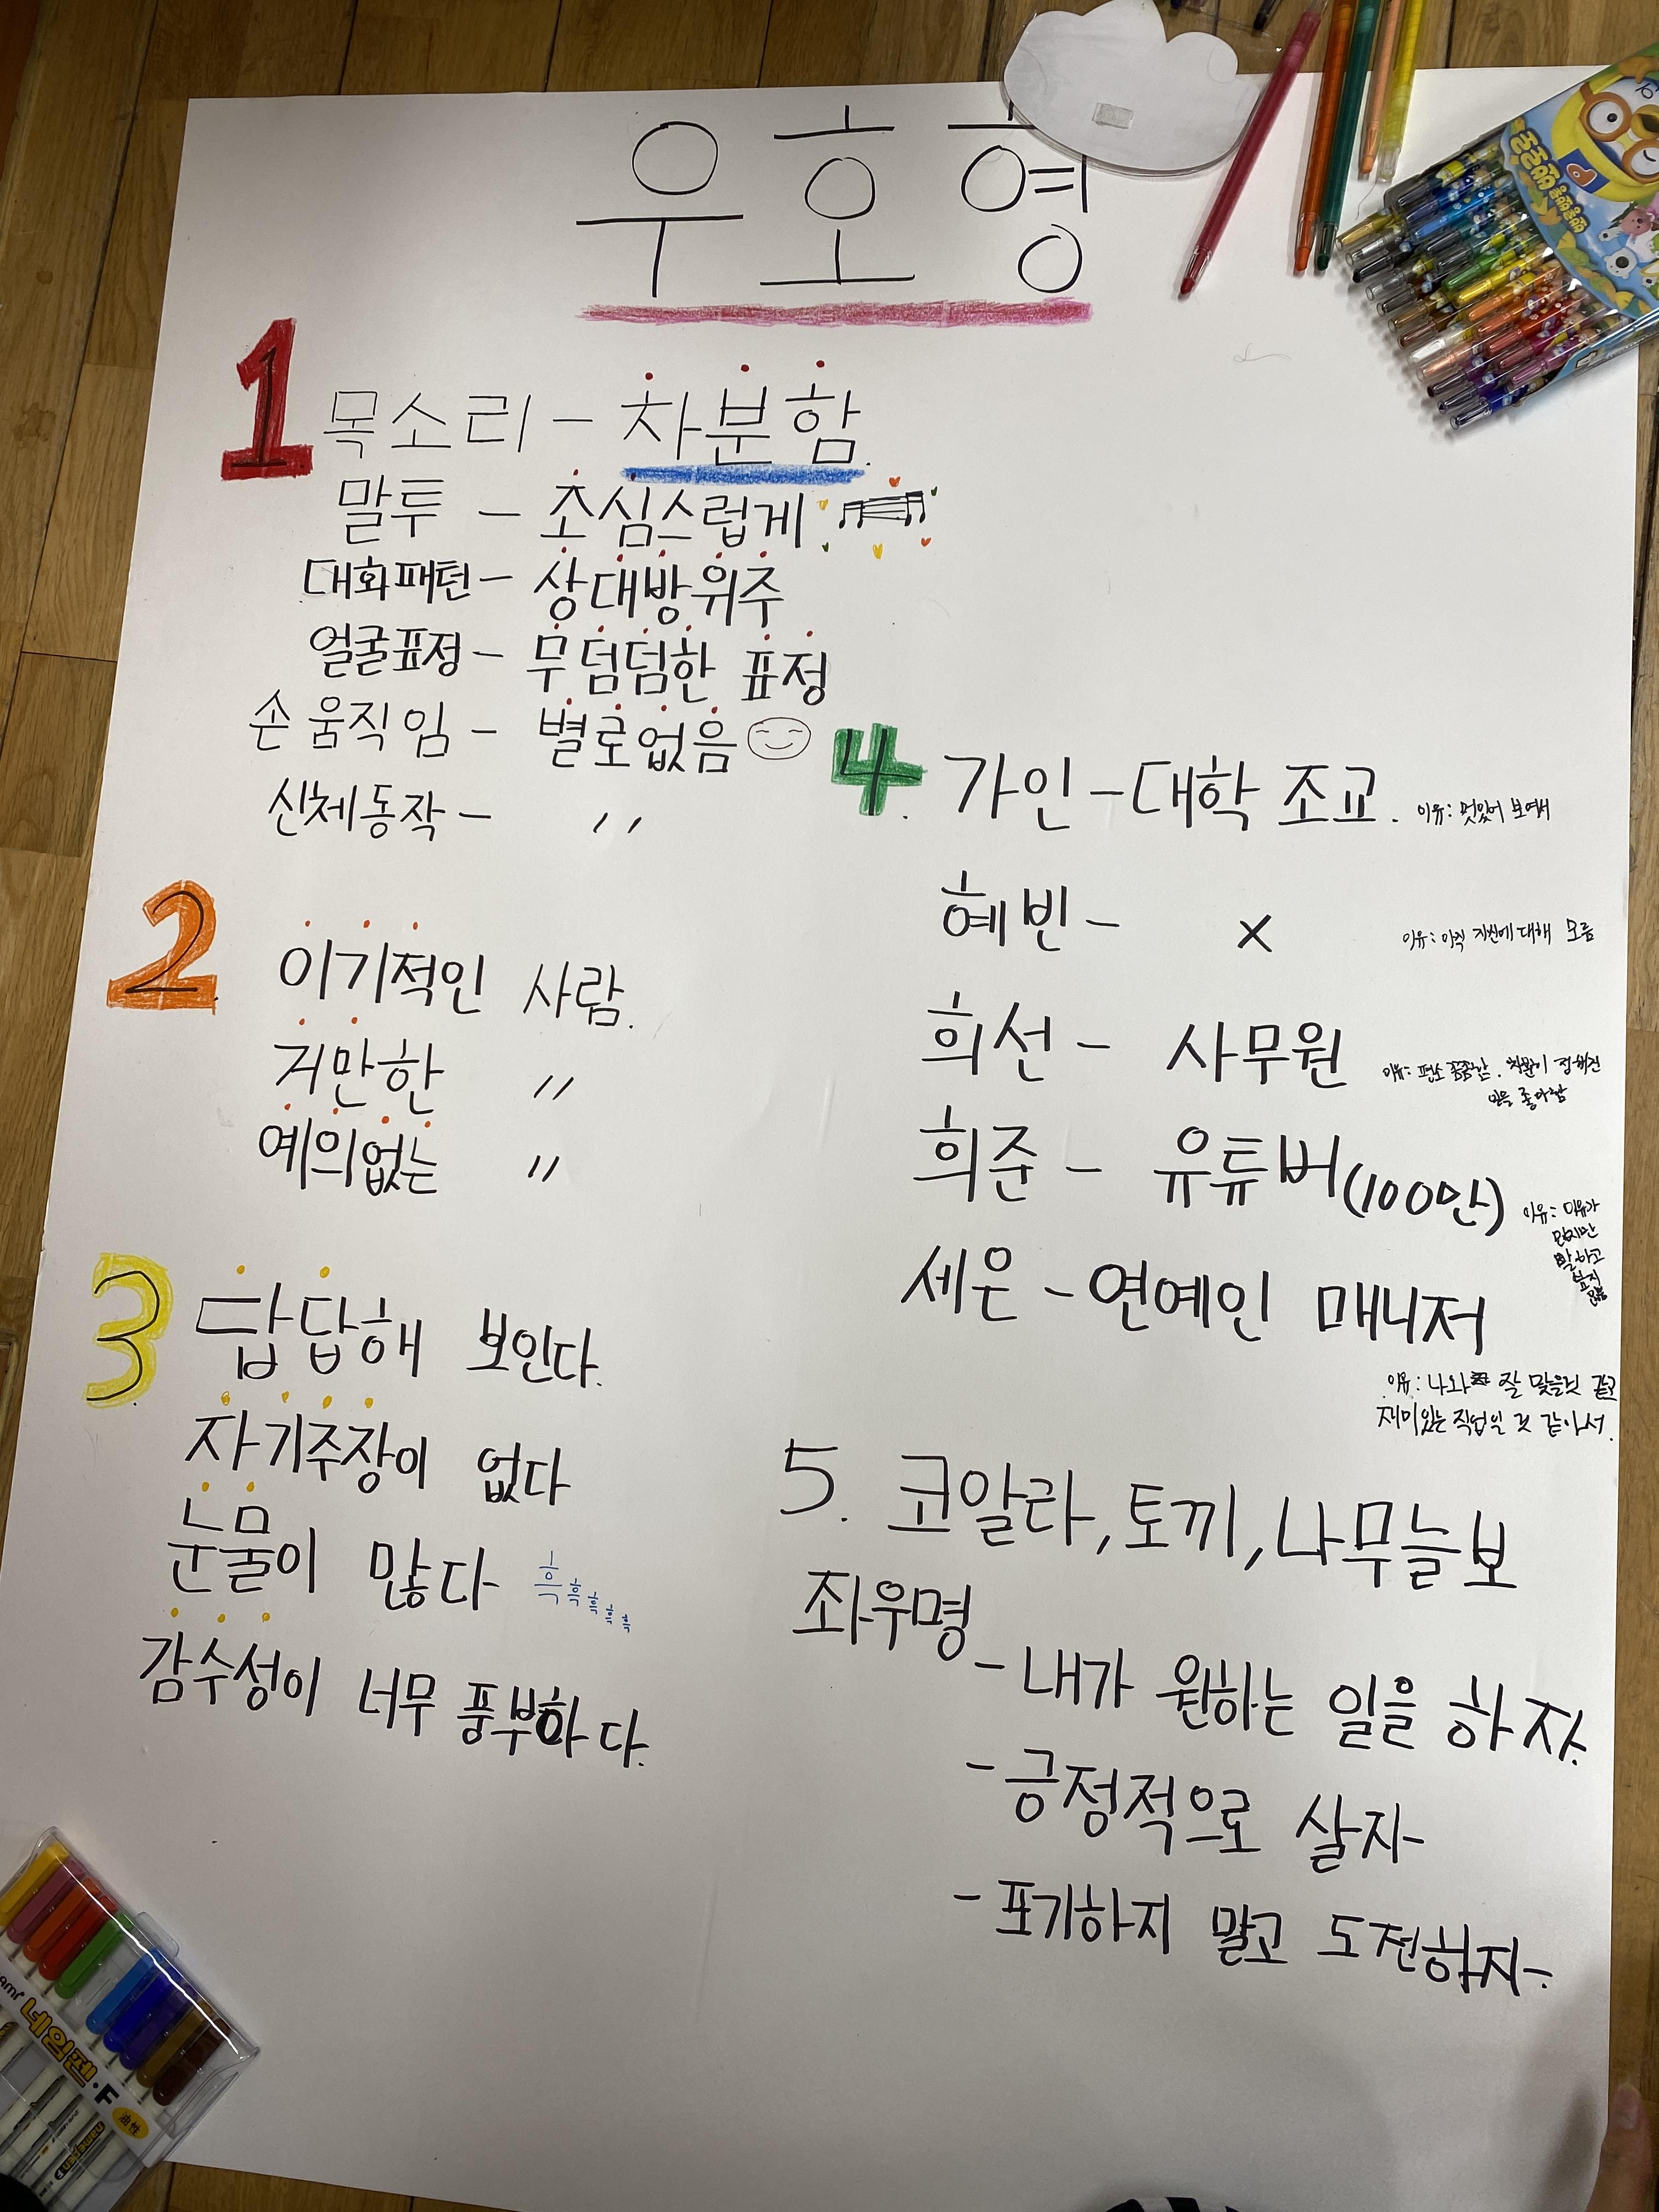 우호형
1 목소리 - 차분함.
말투 - 조심스럽게
대화패턴 - 상대방위주
얼굴표정 - 무덤덤한 표정
손 움직임 - 별로없음
신체동작 - 〃
2. 이기적인 사람.
거만한 〃
예의없는 〃
3. 답답해 보인다.
자기주장이 없다
눈물이 많다 흑흑흑흑흑
감수성이 너무 풍부하다.
4. 가인 - 대학 조교. 이유: 멋있어 보여서
혜빈 - × 이유: 아직 자신에 대해 모름
희선 - 사무원 이유: 평소 꼼꼼함. 차분히 정해진
일을 좋아함
희준 - 유튜버(100만) 이유: 이유가
있지만
말하고
싶지
않음
세은 - 연예인 매니저
이유: 나와 잘 맞을것 같고
재미있는 직업일 것 같아서.
5. 코알라, 토끼, 나무늘보
좌우명
- 내가 원하는 일을 하자.
- 긍정적으로 살자
- 포기하지 말고 도전하자.
네임펜·F
油性
namepen F